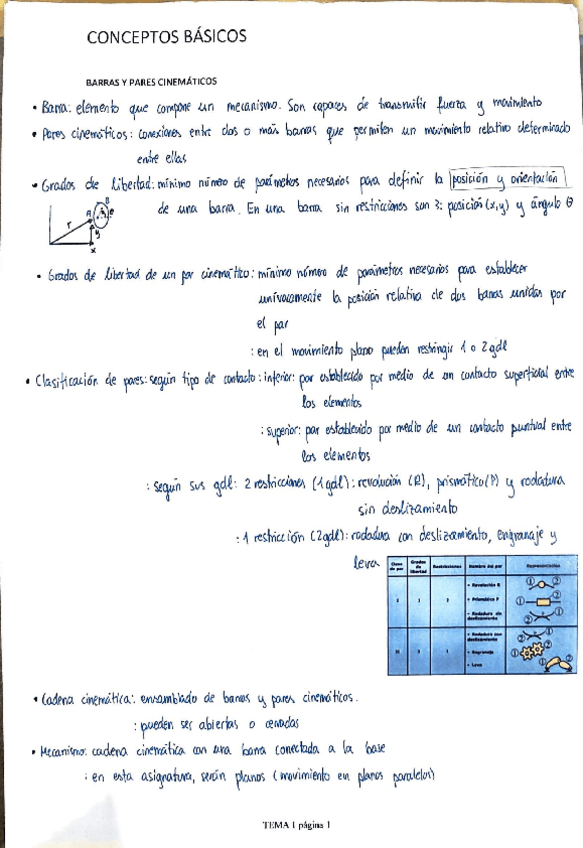 CONCEPTOS BÁSICOS
BARRAS Y PARES CINEMÁTICOS
• Barra: elemento que compone un mecanismo. Son capaces de transmitir fuerza y movimiento
• Pares cinemáticos: conexiones entre dos o más barras que permiten un movimiento relativo determinado
entre ellas
• Grados de libertad: mínimo número de parámetros necesarios para definir la posición y orientación
de una barra. En una barra sin restricciones son 3: posición (x,y) y ángulo θ
r
A
B
θ
y
x
• Grados de libertad de un par cinemático: mínimo número de parámetros necesarios para establecer
unívocamente la posición relativa de dos barras unidas por
el par
: en el movimiento plano pueden restringir 1 o 2 gdl
• Clasificación de pares: según tipo de contacto: inferior: par establecido por medio de un contacto superficial entre
los elementos
: superior: par establecido por medio de un contacto puntual entre
los elementos
: según sus gdl: 2 restricciones (1 gdl): revolución (R), prismático (P) y rodadura
sin deslizamiento
: 1 restricción (2gdl): rodadura con deslizamiento, engranaje y
leva
Clase de par Grados de libertad Restricciones Nombre del par Representación
I 1 2 • Revolución R ① ②
• Prismático P ① ②
• Rodadura sin deslizamiento ① ②
II 2 1 • Rodadura con deslizamiento ① ②
• Engranaje ① ②
• Leva ① ②
• Cadena cinemática: ensamblado de barras y pares cinemáticos.
: pueden ser abiertas o cerradas
• Mecanismo: cadena cinemática con una barra conectada a la base
: en esta asignatura, serán planos (movimiento en planos paralelos)
TEMA 1 página 1